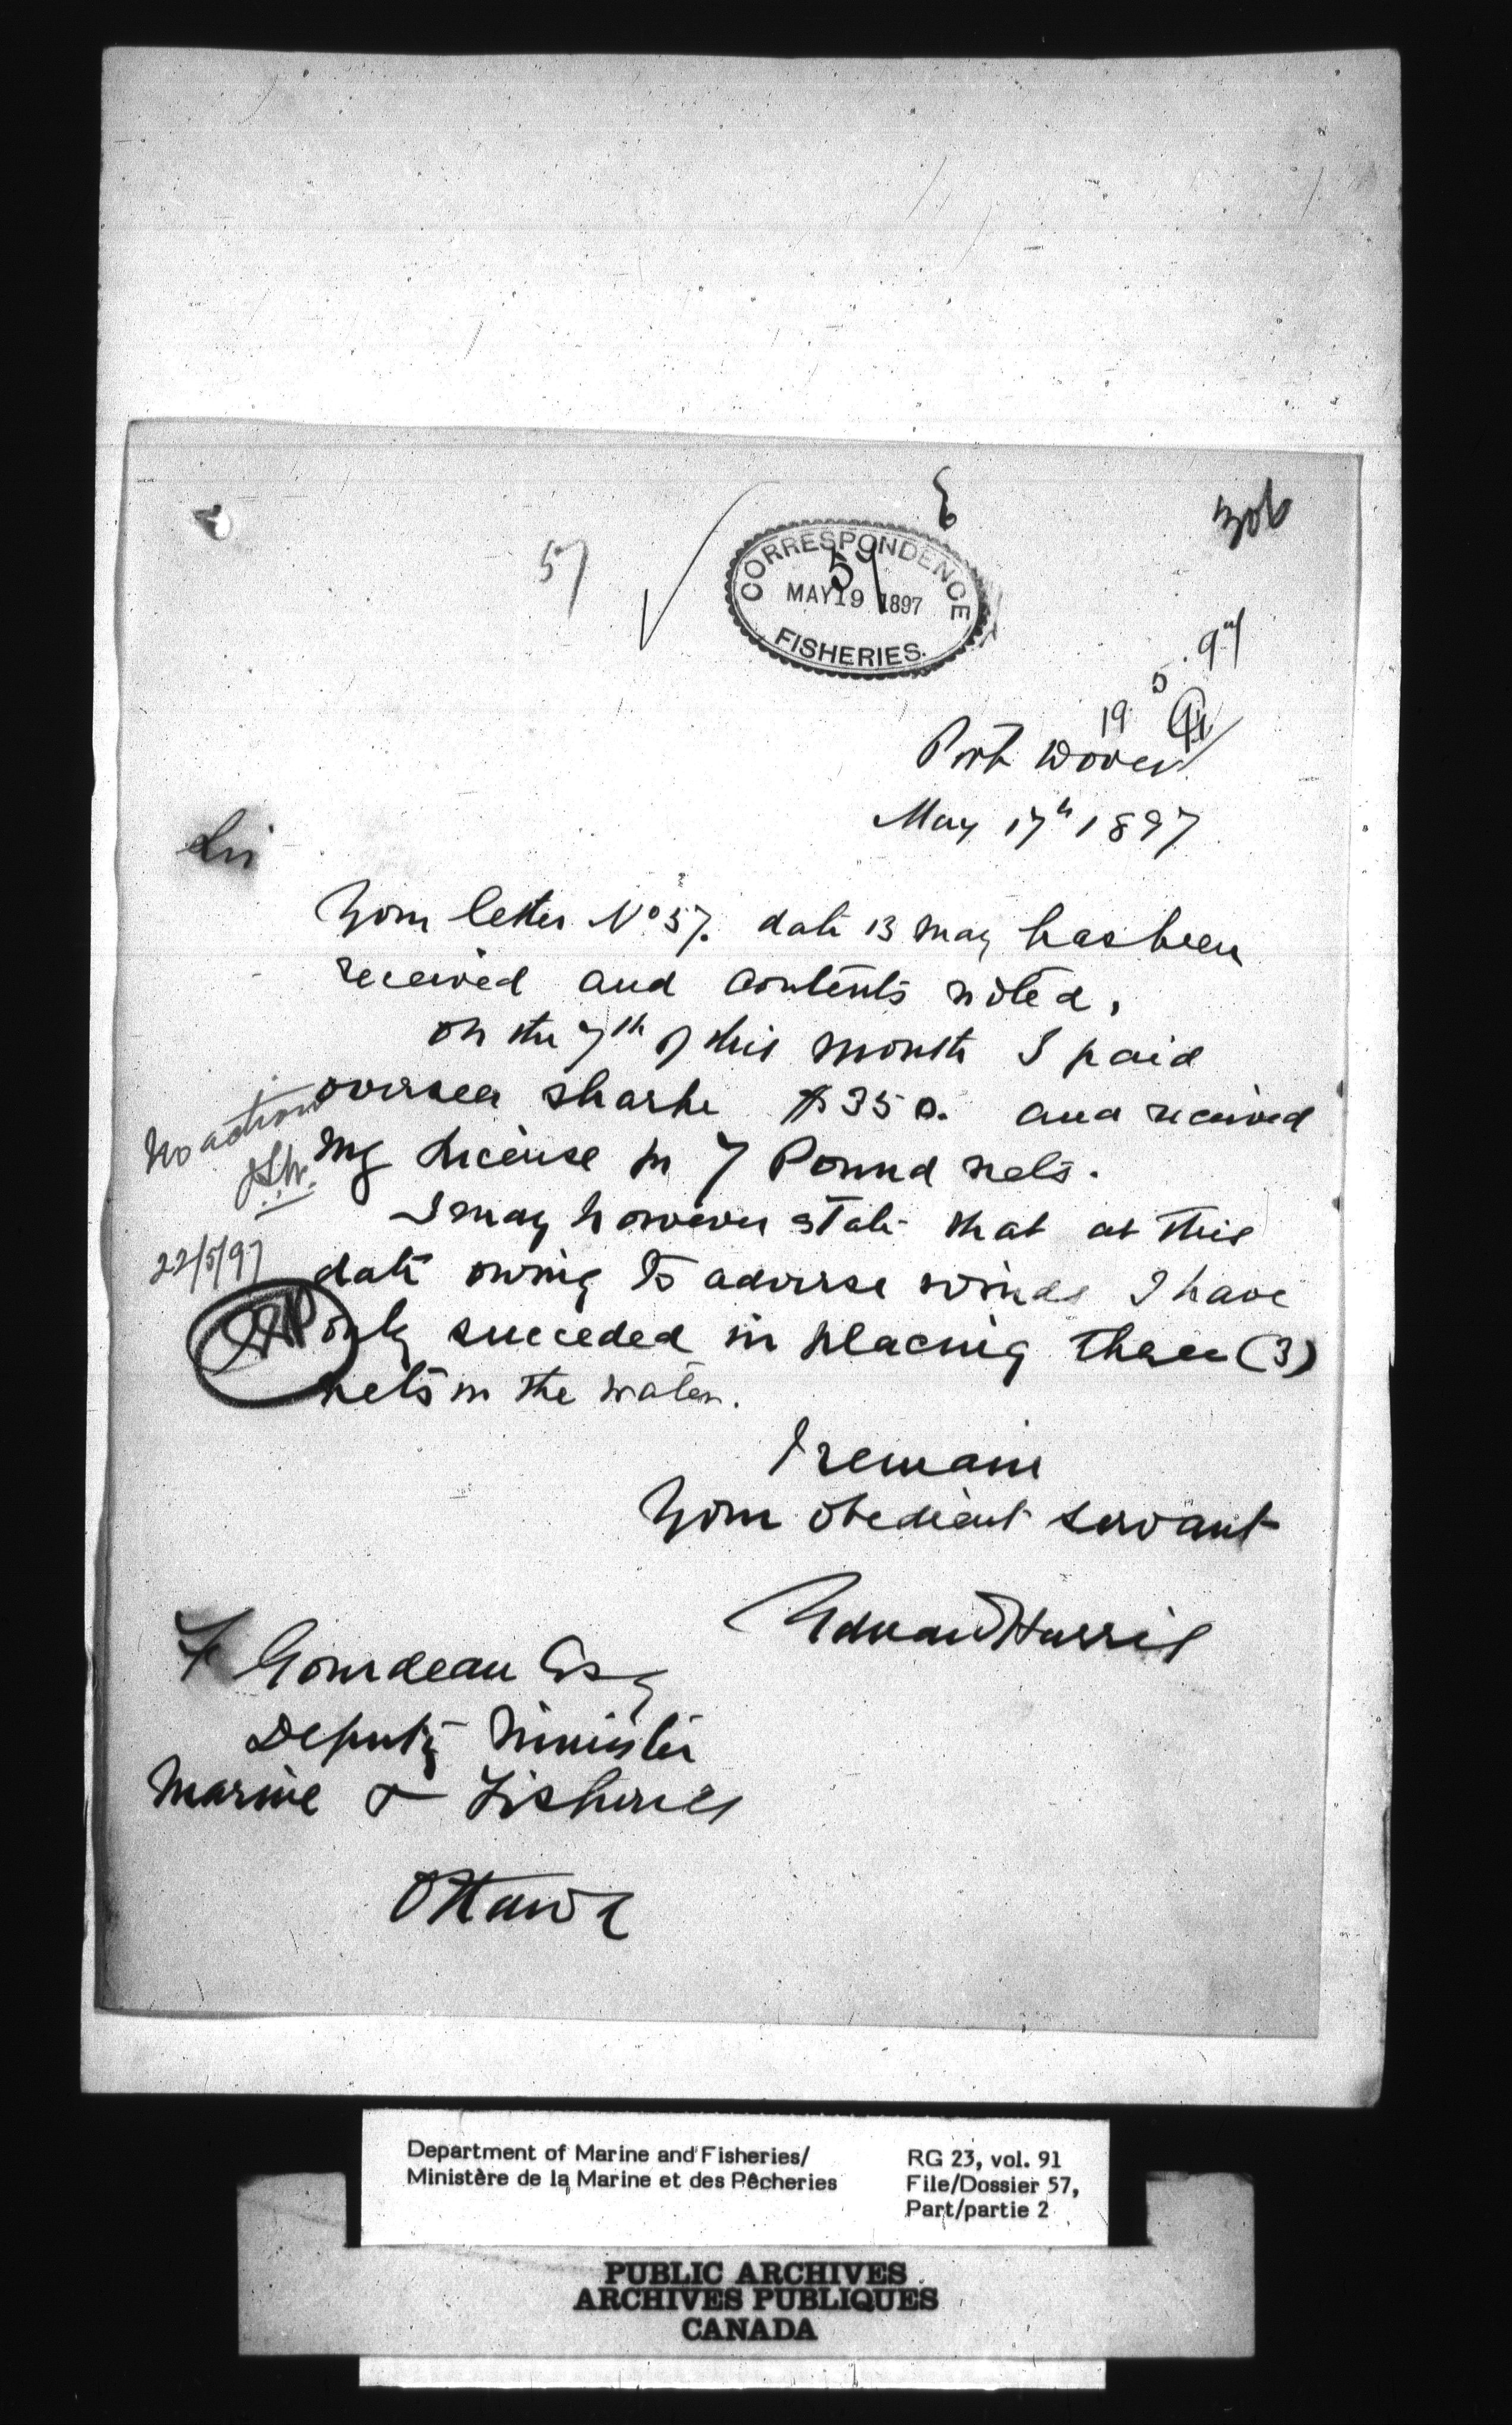 306
57
CORRESPONDENCE
57
MAY 19 1897
FISHERIES.
19 5 . 97
Port Dover
May 17th 1897
Sir
Your letter No 57. date 13 May has been
received and contents noted,
on the 7th of this month I paid
oversea Sharke $350. and received
My License for 7 Pound nets.
I may however state that at this
date owing to adverse winds I have
only succeded in placing three (3)
nets in the water.
No action
22/5/97
I remain
Your obedient servant
Edward Harris
F Gourdeau Esq
Deputy Minister
Marine & Fisheries
Ottawa
Department of Marine and Fisheries/
Ministère de la Marine et des Pêcheries
RG 23, vol. 91
File/Dossier 57,
Part/partie 2
PUBLIC ARCHIVES
ARCHIVES PUBLIQUES
CANADA